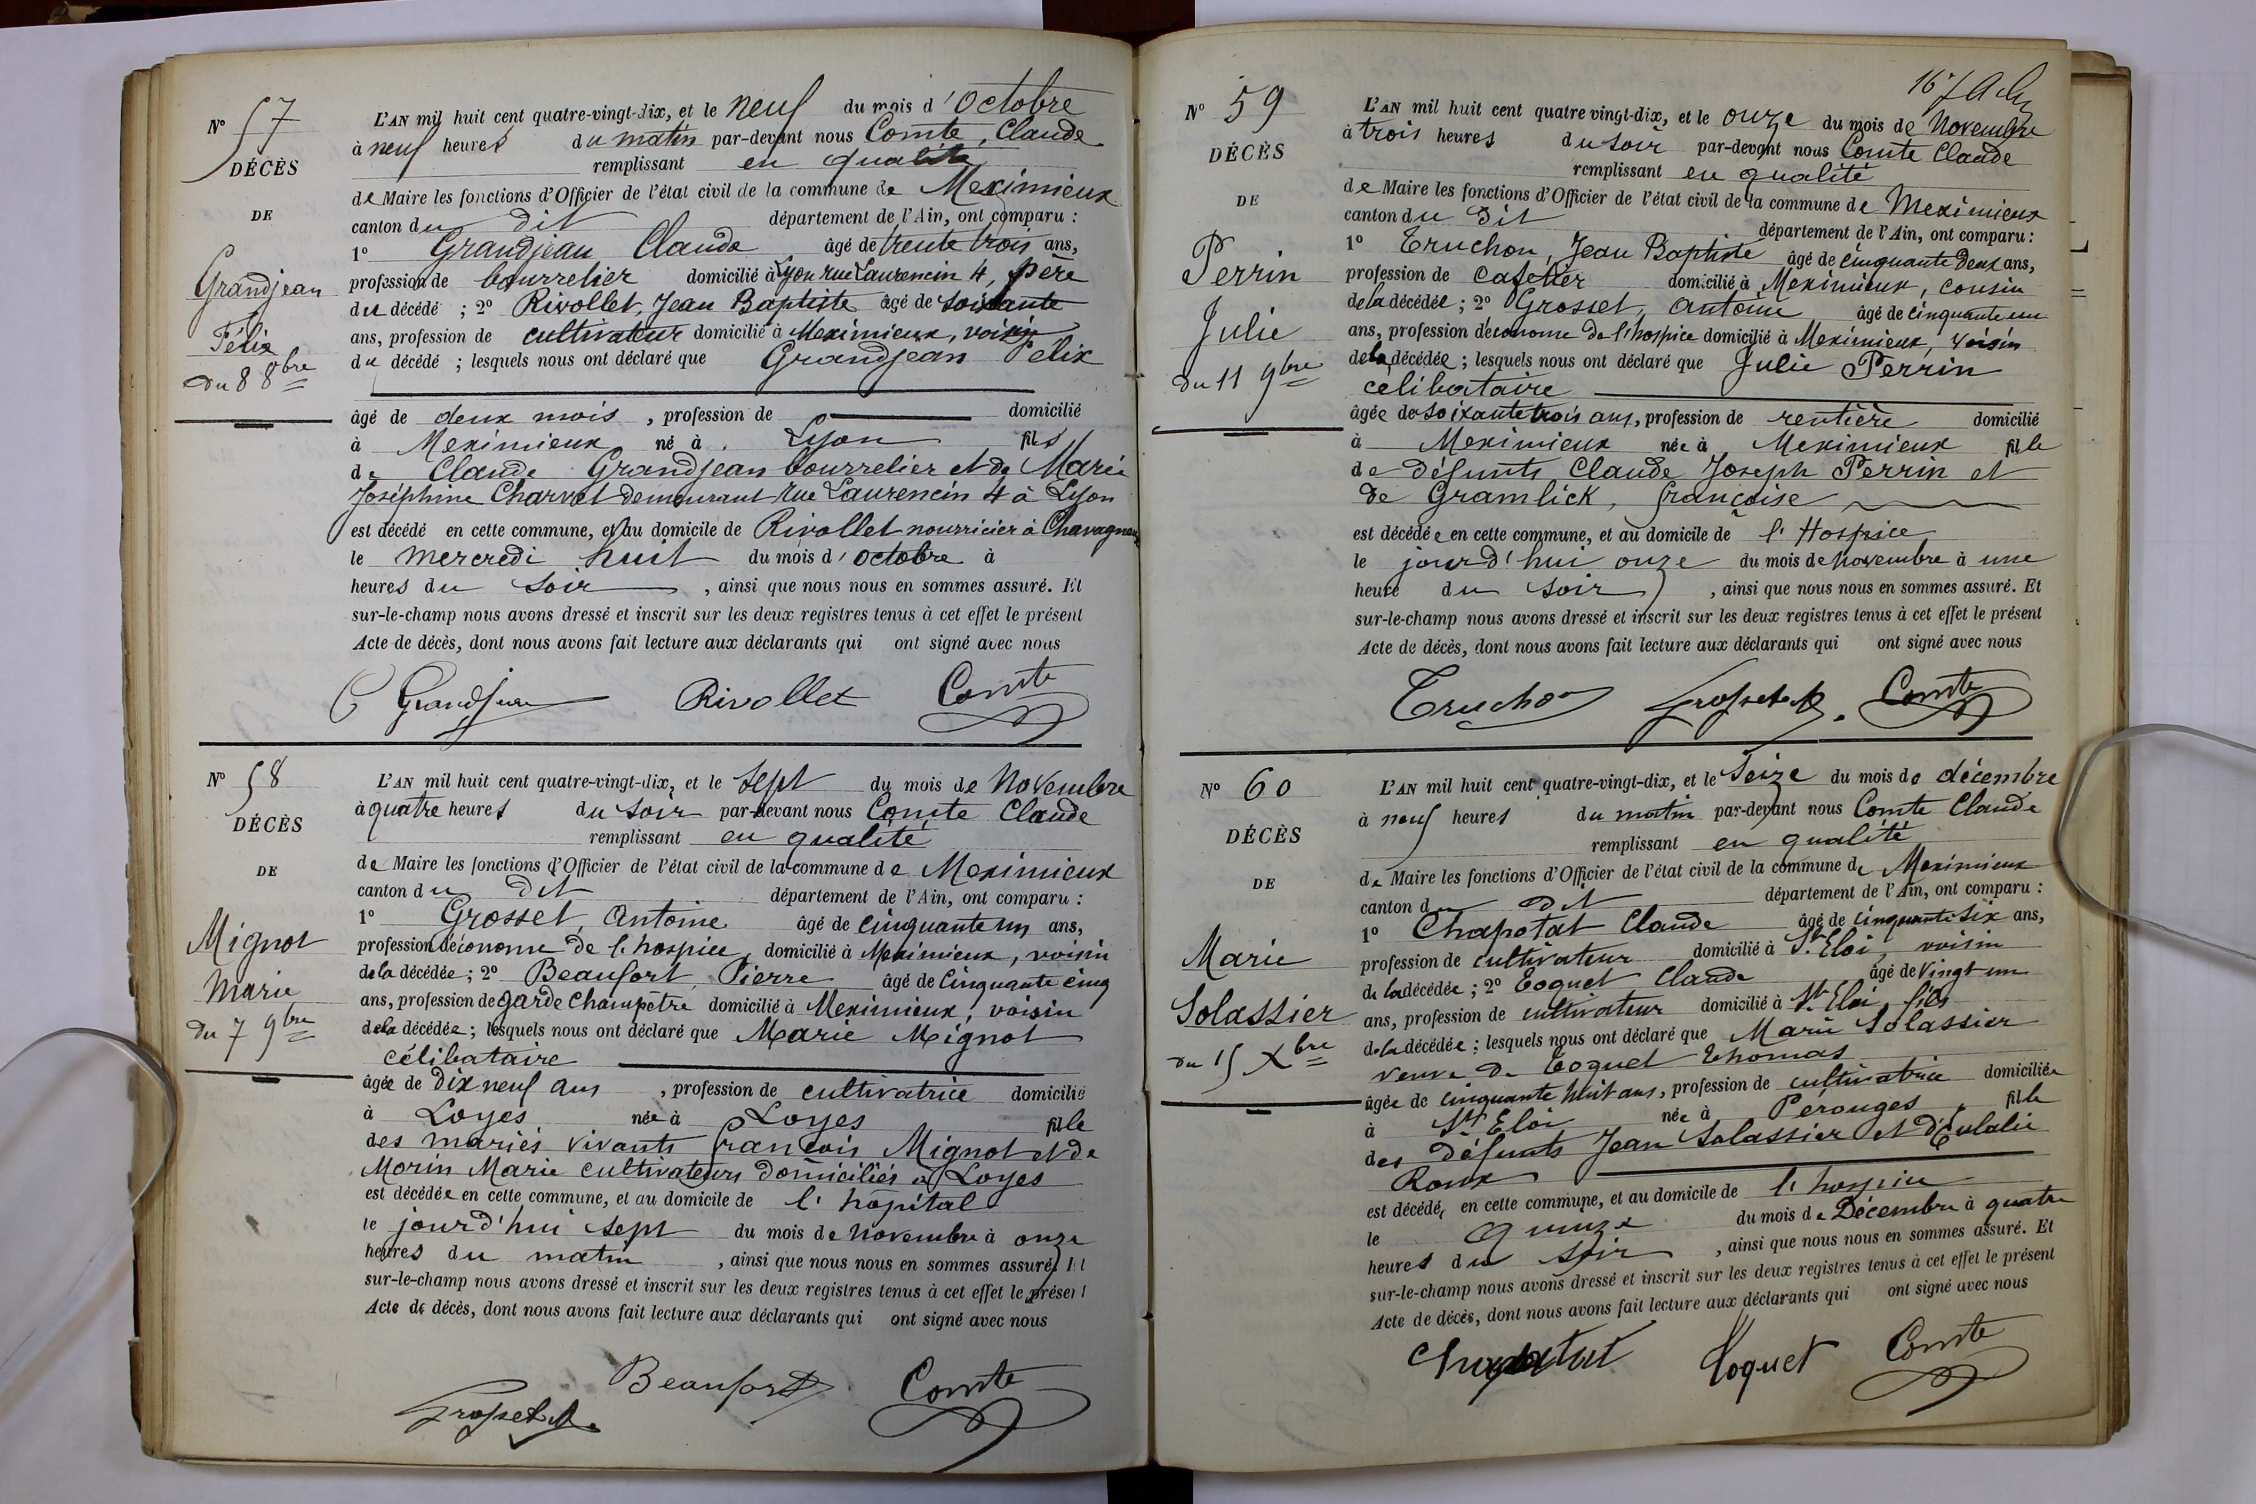 Nº 57
DÉCÈS
DE
Grandjean
Félix
du 8 8bre
L'AN mil huit cent quatre-vingt-dix, et le neuf du mois d'Octobre
à neuf heures du matin par-devant nous Comte, Claude
remplissant en qualité
de Maire les fonctions d'Officier de l'état civil de la commune de Meximieux
canton du dit département de l'Ain, ont comparu :
1º Grandjean Claude âgé de trente trois ans,
profession de bourrelier domicilié à Lyon rue Laurencin 4, père
du décédé ; 2º Rivollet, Jean Baptiste âgé de soixante
ans, profession de cultivateur domicilié à Meximieux, voisin
du décédé ; lesquels nous ont déclaré que Grandjean Félix
âgé de deux mois, profession de domicilié
à Meximieux né à Lyon fils
de Claude Grandjean bourrelier et de Marie
Joséphine Charvet demeurant rue Laurencin 4 à Lyon
est décédé en cette commune, et au domicile de Rivollet nourricier à Chavagneux
le mercredi huit du mois d'octobre à
heures du soir, ainsi que nous nous en sommes assuré. Et
sur-le-champ nous avons dressé et inscrit sur les deux registres tenus à cet effet le présent
Acte de décès, dont nous avons fait lecture aux déclarants qui ont signé avec nous
C Grandjean Rivollet Comte
Nº 58
DÉCÈS
DE
Mignot
Marie
du 7 9bre
L'AN mil huit cent quatre-vingt-dix, et le sept du mois de Novembre
à quatre heures du soir par-devant nous Comte Claude
remplissant en qualité
de Maire les fonctions d'Officier de l'état civil de la commune de Meximieux
canton du dit département de l'Ain, ont comparu :
1º Grosset, Antoine âgé de cinquante un ans,
profession d'économe de l'hospice domicilié à Meximieux, voisin
de la décédée ; 2º Beaufort, Pierre âgé de cinquante cinq
ans, profession de garde champêtre domicilié à Meximieux, voisin
de la décédée ; lesquels nous ont déclaré que Marie Mignot
célibataire
âgée de dix neuf ans, profession de cultivatrice domicilié
à Loyes née à Loyes fille
des mariés vivants François Mignot et de
Morin Marie cultivateurs domiciliés à Loyes
est décédée en cette commune, et au domicile de l'hôpital
le jourd'hui sept du mois de novembre à onze
heures du matin, ainsi que nous nous en sommes assuré. Et
sur-le-champ nous avons dressé et inscrit sur les deux registres tenus à cet effet le présent
Acte de décès, dont nous avons fait lecture aux déclarants qui ont signé avec nous
Grosset A. Beaufort Comte
16
Nº 59
DÉCÈS
DE
Perrin
Julie
du 11 9bre
L'AN mil huit cent quatre vingt-dix, et le onze du mois de Novembre
à trois heures du soir par-devant nous Comte Claude
remplissant en qualité
de Maire les fonctions d'Officier de l'état civil de la commune de Meximieux
canton du dit département de l'Ain, ont comparu :
1º Truchon, Jean Baptiste âgé de cinquante deux ans,
profession de cafetier domicilié à Meximieux, cousin
de la décédée ; 2º Grosset, Antoine âgé de cinquante un
ans, profession d'économe de l'hospice domicilié à Meximieux, voisin
de la décédée ; lesquels nous ont déclaré que Julie Perrin
célibataire
âgée de soixante trois ans, profession de rentière domicilié
à Meximieux née à Meximieux fille
de défunts Claude Joseph Perrin et
de Gramlick, françoise
est décédée en cette commune, et au domicile de l'Hospice
le jourd'hui onze du mois de novembre à une
heure du soir, ainsi que nous nous en sommes assuré. Et
sur-le-champ nous avons dressé et inscrit sur les deux registres tenus à cet effet le présent
Acte de décès, dont nous avons fait lecture aux déclarants qui ont signé avec nous
Truchon Grosset A. Comte
Nº 60
DÉCÈS
DE
Marie
Solassier
du 15 Xbre
L'AN mil huit cent quatre-vingt-dix, et le Seize du mois de décembre
à neuf heures du matin par-devant nous Comte Claude
remplissant en qualité
de Maire les fonctions d'Officier de l'état civil de la commune de Meximieux
canton du dit département de l'Ain, ont comparu :
1º Chapotat Claude âgé de cinquante six ans,
profession de cultivateur domicilié à St Eloi, voisin
de la décédée ; 2º Coquet Claude âgé de vingt un
ans, profession de cultivateur domicilié à St Eloi, fils
de la décédée ; lesquels nous ont déclaré que Marie Solassier
veuve de Coquet Thomas
âgée de cinquante huit ans, profession de cultivatrice domiciliée
à St Eloi née à Pérouges, fille
des défunts Jean Solassier et d'Eulalie
Roux
est décédée en cette commune, et au domicile de l'hospice
le quinze du mois de Décembre à quatre
heures du soir, ainsi que nous nous en sommes assuré. Et
sur-le-champ nous avons dressé et inscrit sur les deux registres tenus à cet effet le présent
Acte de décès, dont nous avons fait lecture aux déclarants qui ont signé avec nous
Chapotat Coquet Comte